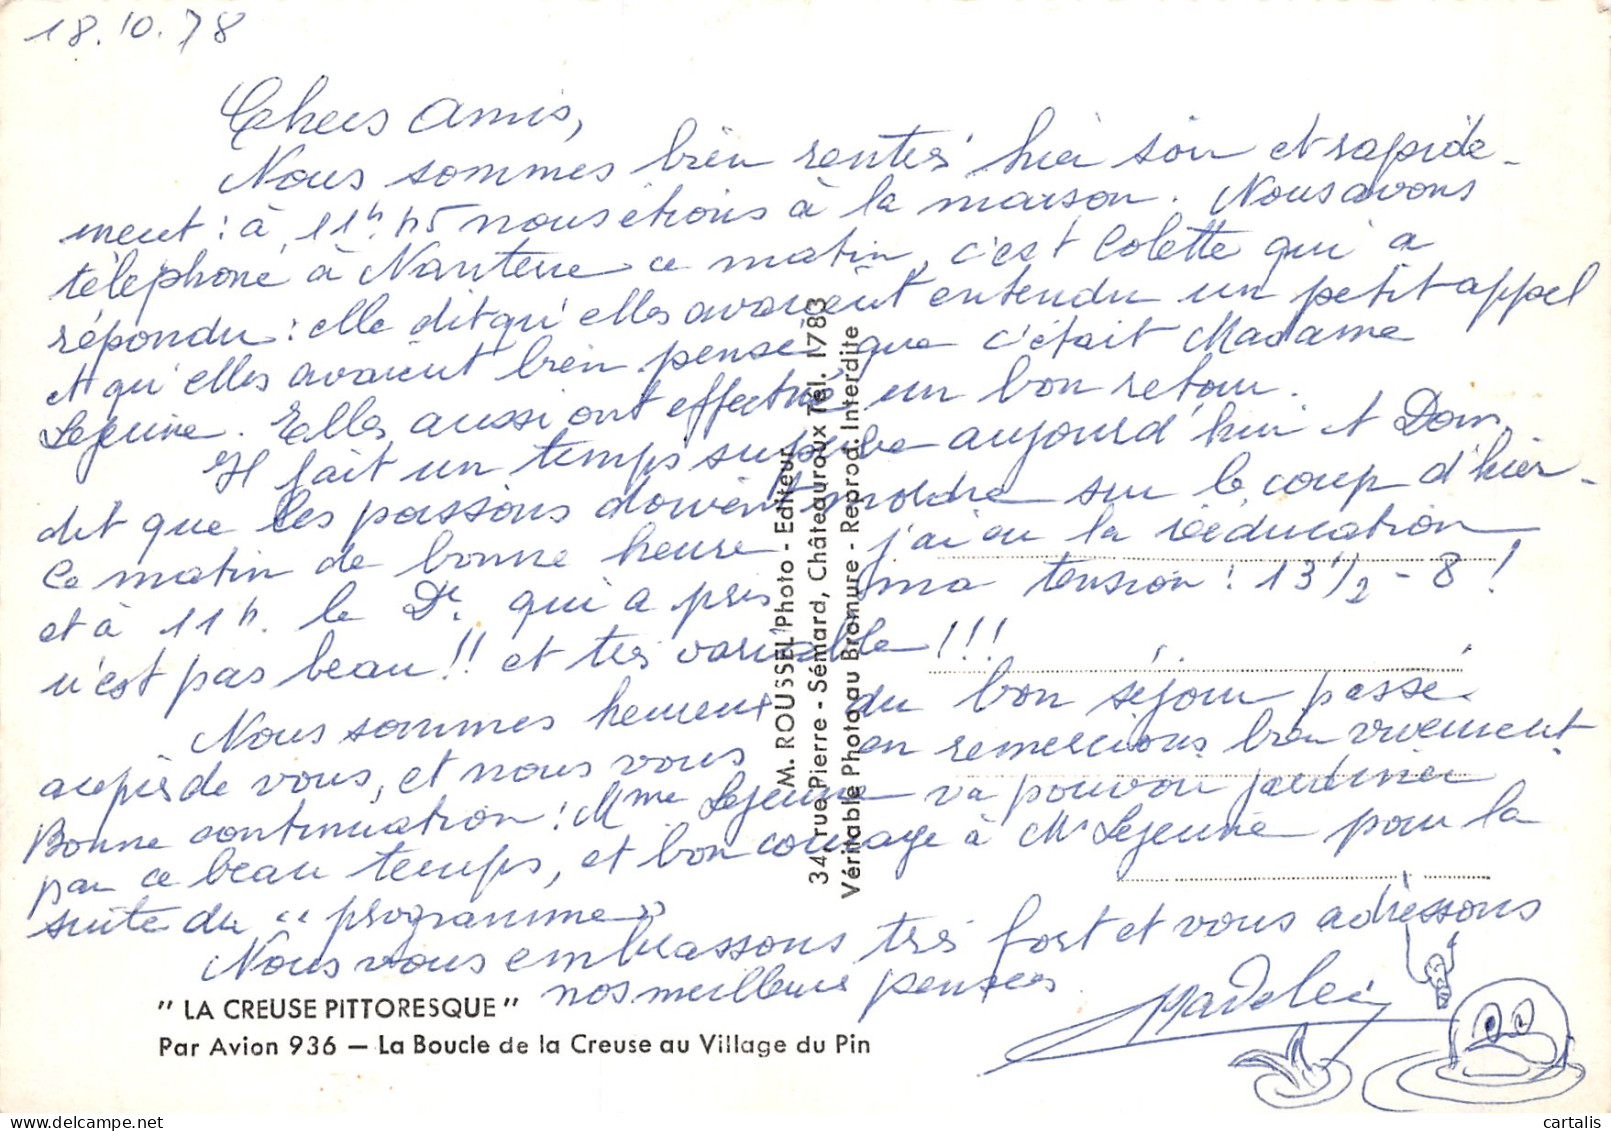 18.10.78
Chers Amis,
Nous sommes bien rentrés hier soir et rapide-
ment : à 11h 45 nous étions à la maison. Nous avons
téléphoné à Nanterre ce matin, c'est Colette qui a
répondu : elle dit qu'elles avaient entendu un petit appel
et qu'elles avaient bien pensé que c'était Madame
Lejeune. Elles aussi ont effectué un bon retour.
Il fait un temps superbe aujourd'hui et Dom.
dit que les poissons doivent mordre sur le coup d'hier -
Ce matin de bonne heure j'ai eu la rééducation
et à 11h. le Dr. qui a pris ma tension : 13 1/2 - 8 !
n'est pas beau !! et très variable !!!
Nous sommes heureux du bon séjour passé
auprès de vous, et nous vous en remercions bien vivement
Bonne continuation : Mme Lejeune va pouvoir jardiner
par ce beau temps, et bon courage à Mr Lejeune pour la
suite du "programme"
Nous vous embrassons très fort et vous adressons
nos meilleures pensées
" LA CREUSE PITTORESQUE "
Par Avion 936 — La Boucle de la Creuse au Village du Pin
M. ROUSSEL Photo - Editeur
34, rue Pierre - Sémard, Châteauroux Tél. 1783
Véritable Photo au Bromure - Reprod. Interdite
cartalis